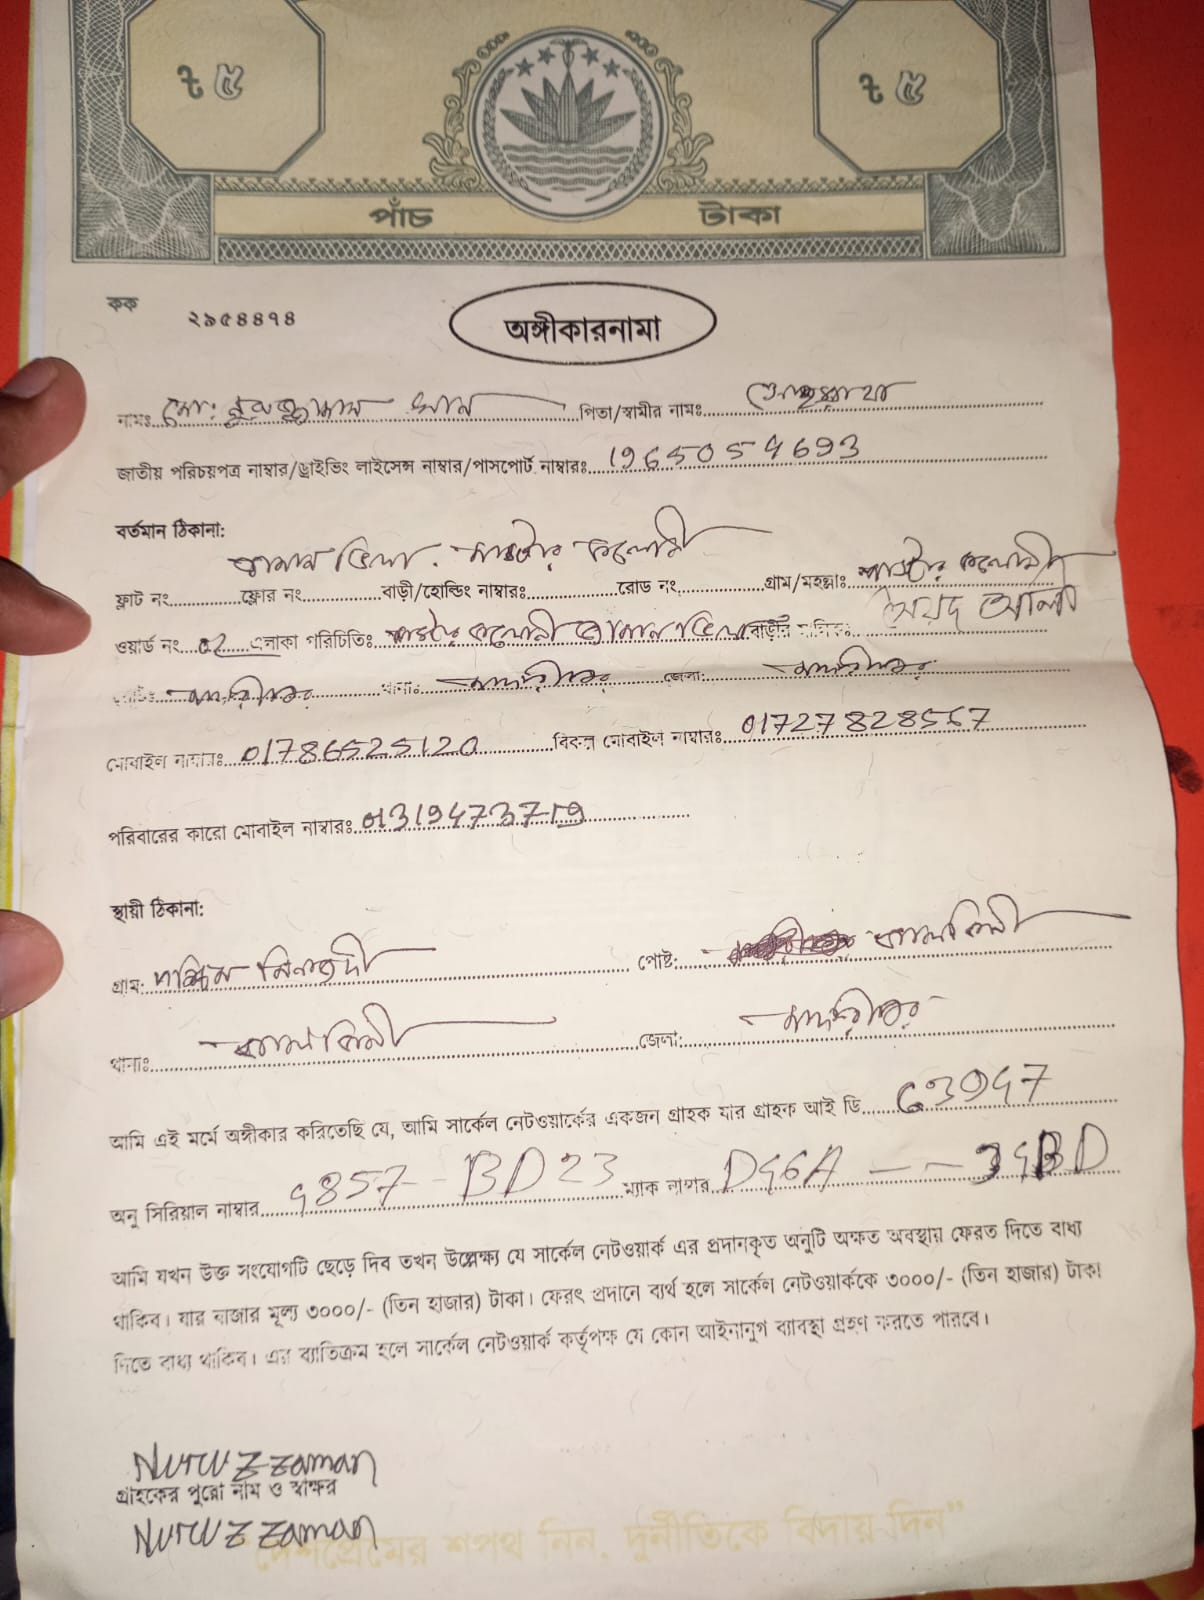 ৳ ৫ ৳ ৫
পাঁচ টাকা
কক ২৯৫৪৪৭৪
অঙ্গীকারনামা
নামঃ মো: নুরুজ্জামান খান পিতা/স্বামীর নামঃ
জাতীয় পরিচয়পত্র নাম্বার/ড্রাইভিং লাইসেন্স নাম্বার/পাসপোর্ট নাম্বারঃ 1965054693
বর্তমান ঠিকানা:
জামান ভিলা. মাস্টার কলোনী
ফ্লাট নং ফ্লোর নং বাড়ী/হোল্ডিং নাম্বারঃ রোড নং গ্রাম/মহল্লাঃ মাস্টার কলোনী
ওয়ার্ড নং 02 এলাকা পরিচিতিঃ মাস্টার কলোনী জামান ভিলা বাড়ীর মালিক: সৈয়দ আলী
মাদারীপুর থানা: মাদারীপুর জেলা: মাদারীপুর
মোবাইল নাম্বারঃ 01786525120 বিকল্প মোবাইল নাম্বারঃ 01727828567
পরিবারের কারো মোবাইল নাম্বারঃ 01319473719
স্থায়ী ঠিকানা:
গ্রাম: দক্ষিন মিনাজদী পোষ্ট: কালকিনী
থানাঃ কালকিনী জেলা: মাদারীপুর
আমি এই মর্মে অঙ্গীকার করিতেছি যে, আমি সার্কেল নেটওয়ার্কের একজন গ্রাহক যার গ্রাহক আই ডি C3947
অনু সিরিয়াল নাম্বার 4857--BD23 ম্যাক নাম্বার D46A -- 34BD
আমি যখন উক্ত সংযোগটি ছেড়ে দিব তখন উল্লেক্ষ্য যে সার্কেল নেটওয়ার্ক এর প্রদানকৃত অনুটি অক্ষত অবস্থায় ফেরত দিতে বাধ্য
থাকিব। যার বাজার মূল্য ৩০০০/- (তিন হাজার) টাকা। ফেরৎ প্রদানে ব্যর্থ হলে সার্কেল নেটওয়ার্ককে ৩০০০/- (তিন হাজার) টাকা
দিতে বাধ্য থাকিব। এর ব্যাতিক্রম হলে সার্কেল নেটওয়ার্ক কর্তৃপক্ষ যে কোন আইনানুগ ব্যাবস্থা গ্রহণ করতে পারবে।
Nuruzzaman
গ্রাহকের পুরো নাম ও স্বাক্ষর
Nuruzzaman
দেশপ্রেমের শপথ নিন, দুর্নীতিকে বিদায় দিন"